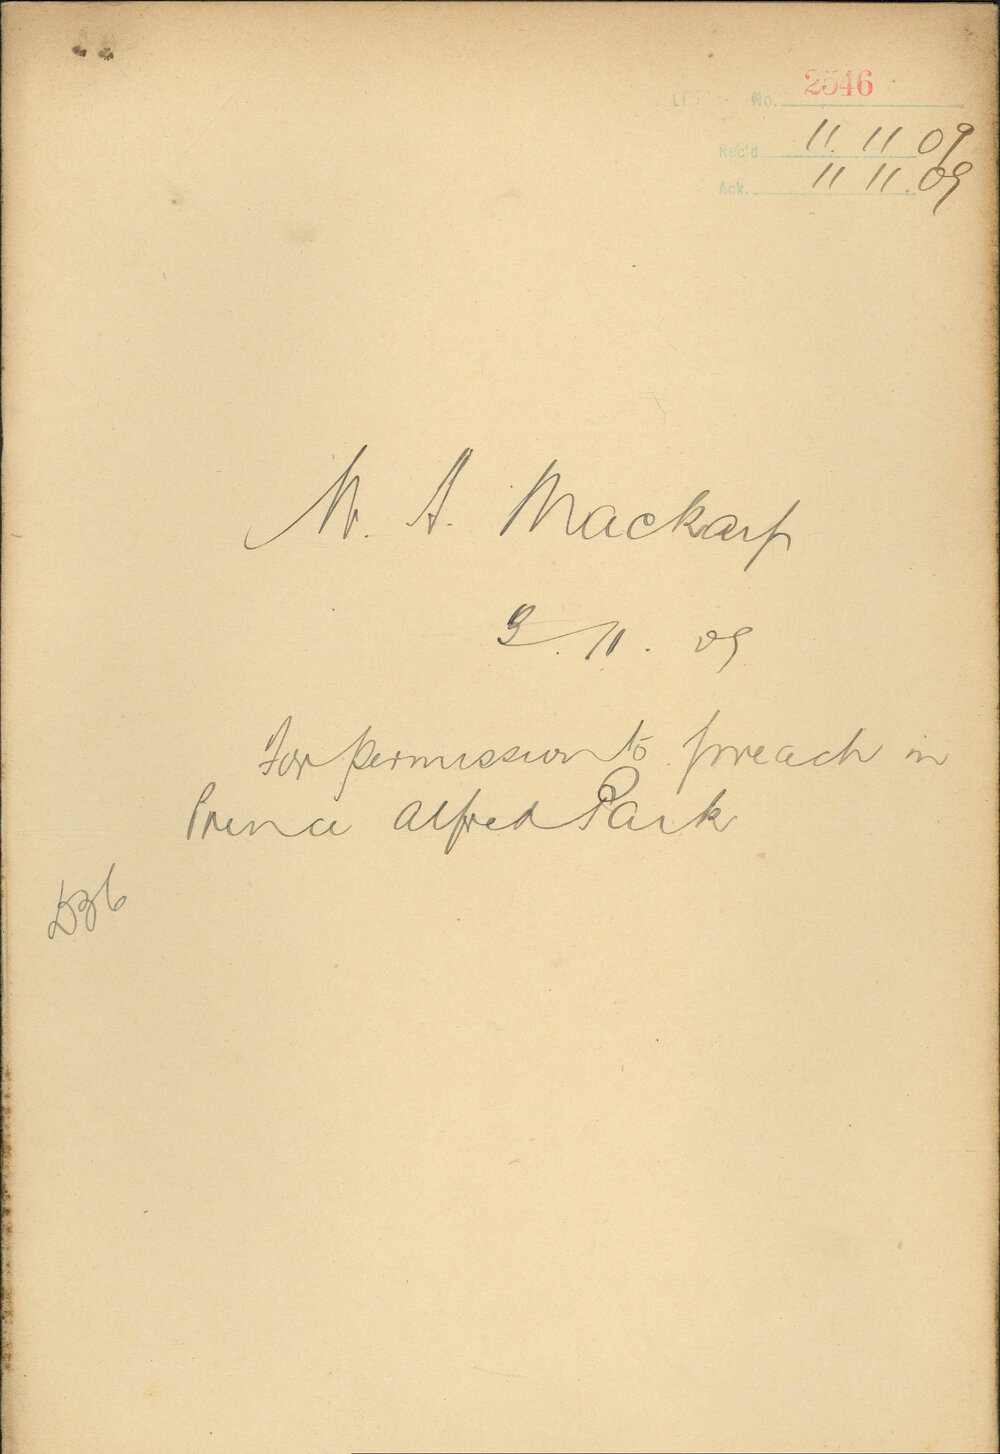 No. 2546
Rec'd 11. 11 09
Ack. 11 11. 09
A. Mackay
9. 11. 09
For permission to preach in
Prince Alfred Park